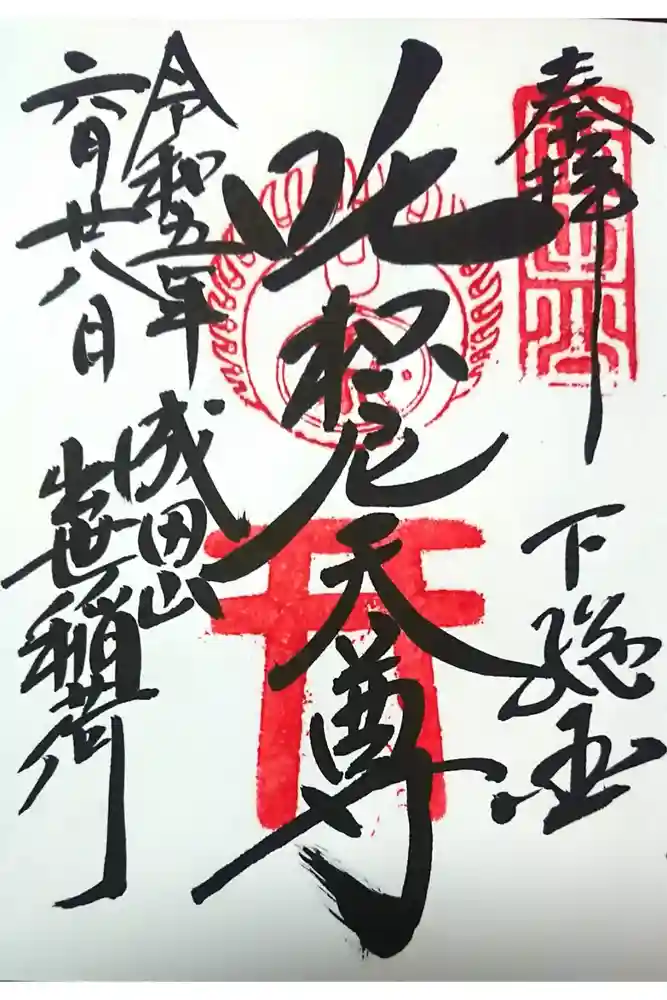 奉拝
下総国
吒枳尼天尊
令和五年
六月廿八日
成田山
出世稲荷